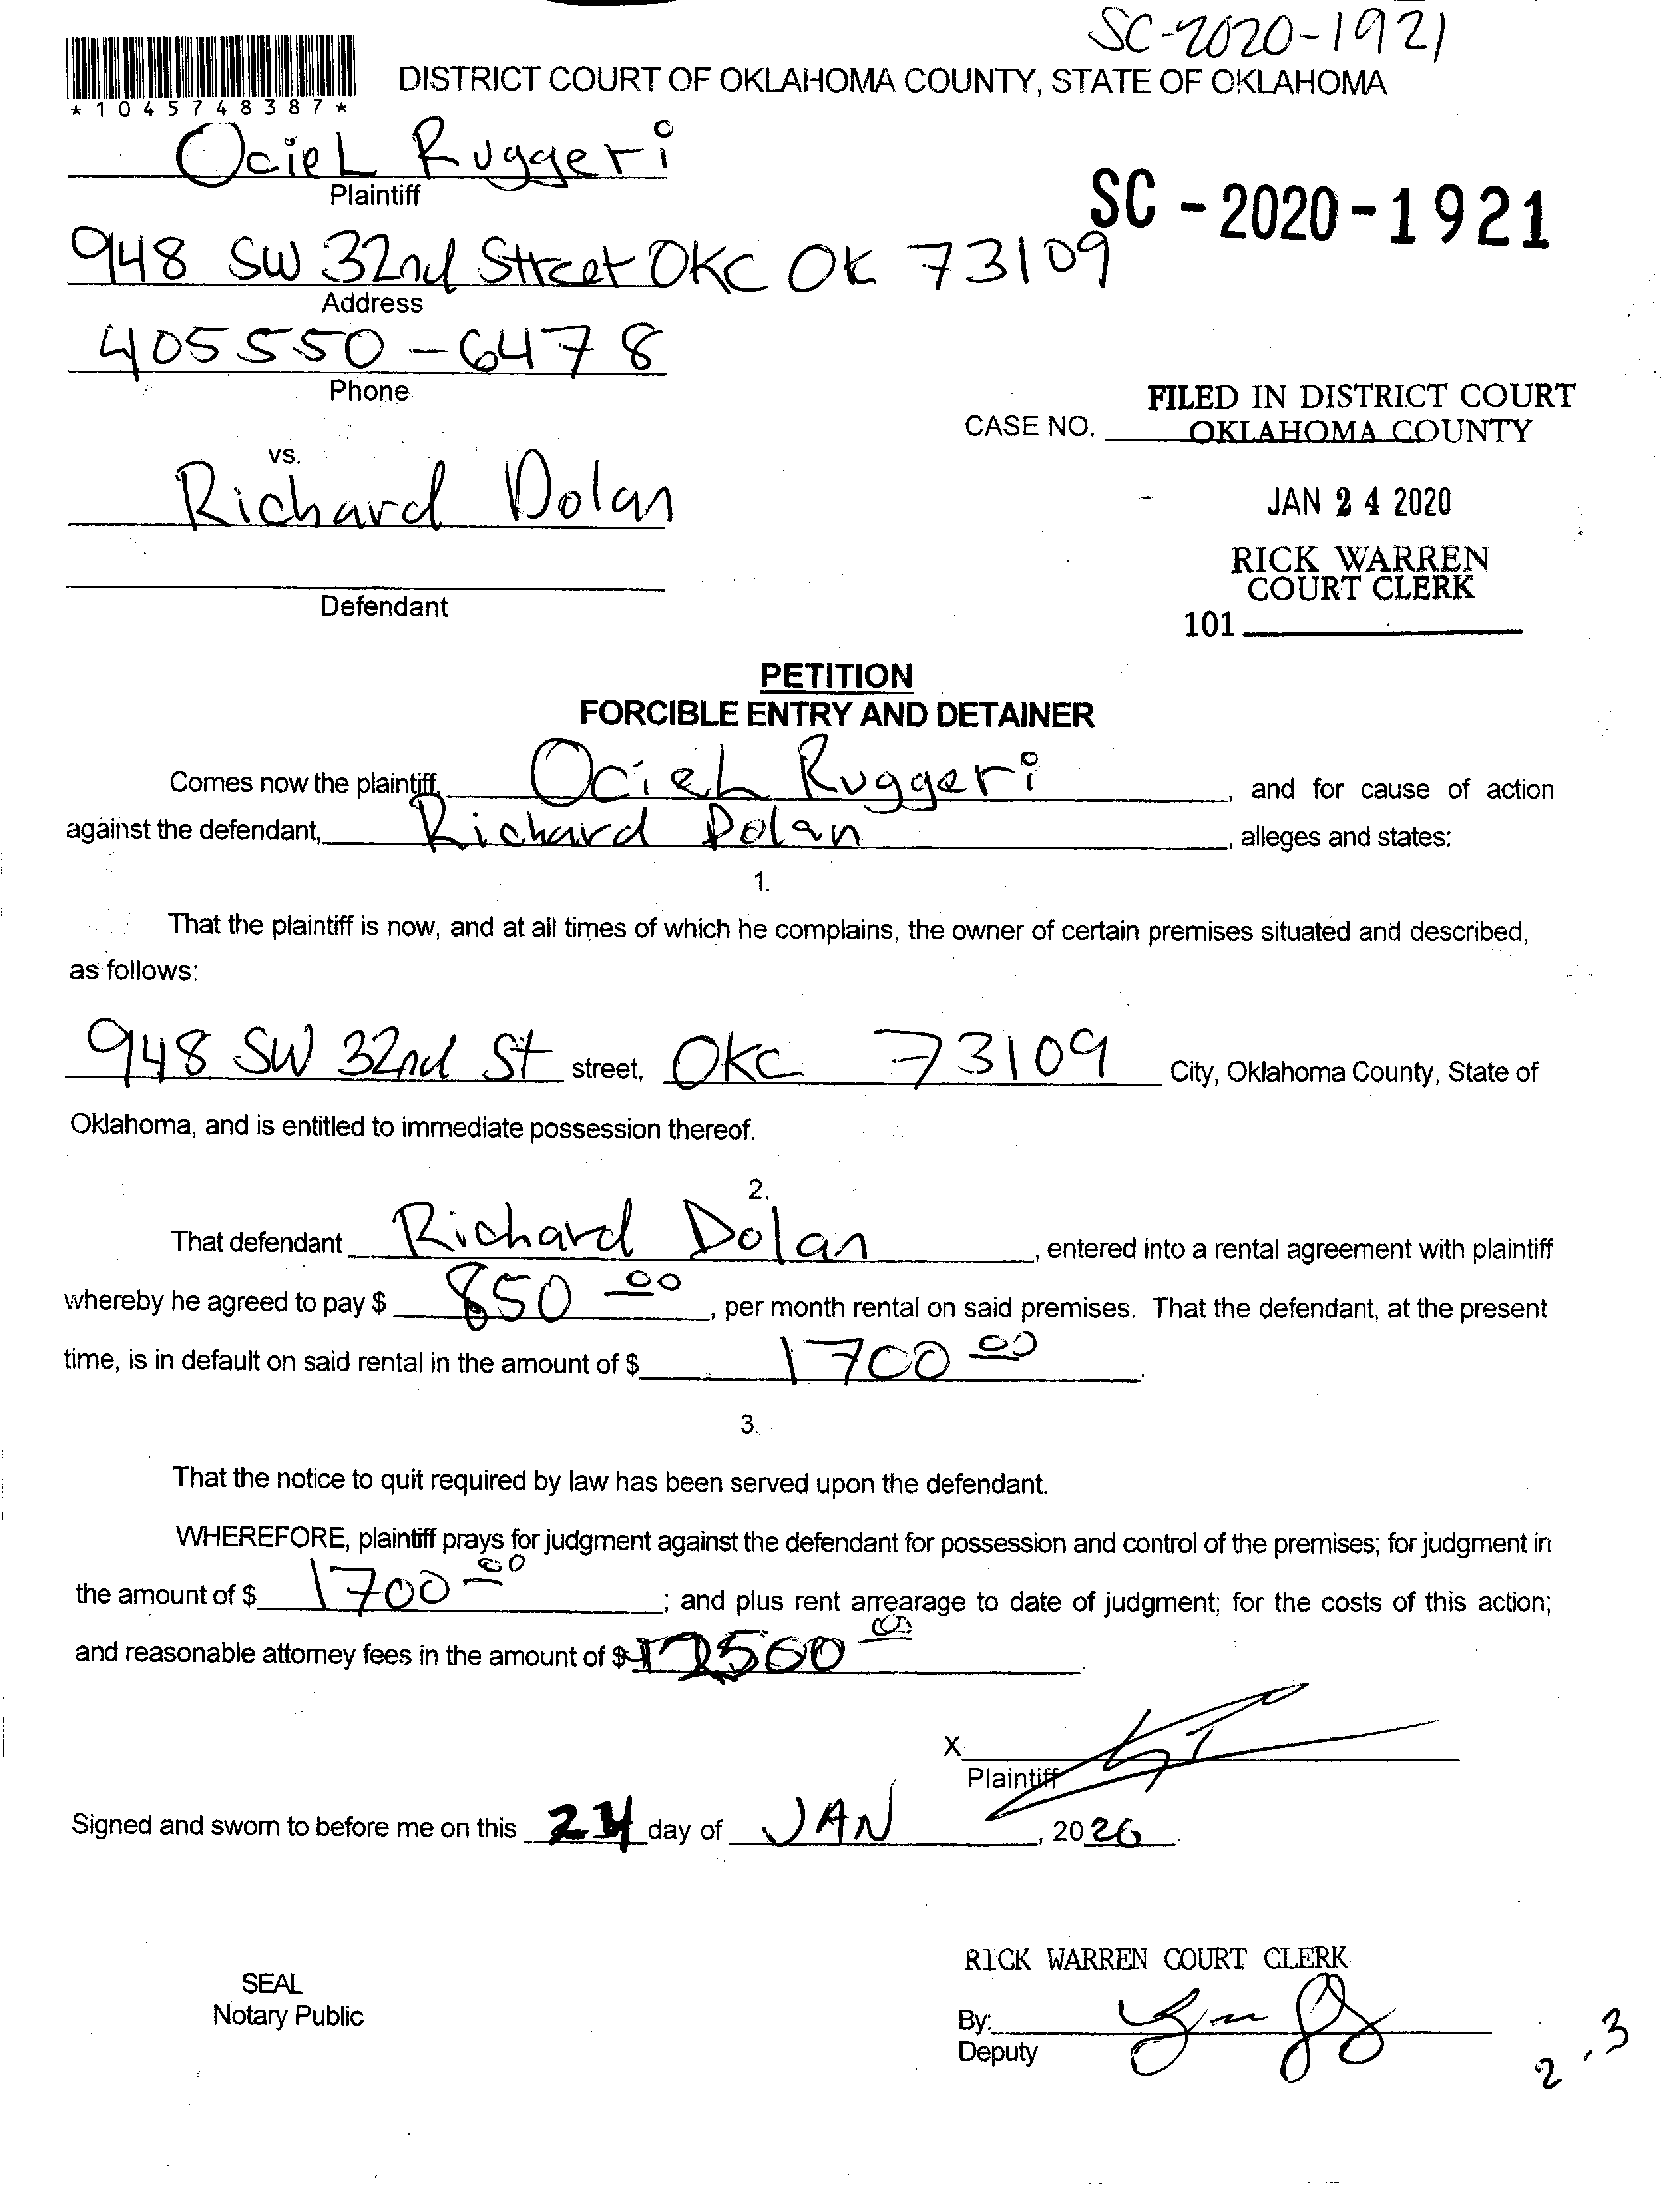 SC-2020-1921
*1045748387*
DISTRICT COURT OF OKLAHOMA COUNTY, STATE OF OKLAHOMA
Ociel Ruggeri
Plaintiff
SC-2020-1921
948 SW 32nd Street OKC OK 73109
Address
405 550-6478
Phone
FILED IN DISTRICT COURT
CASE NO. OKLAHOMA COUNTY
vs.
Richard Dolan
JAN 24 2020
RICK WARREN
COURT CLERK
Defendant
101
PETITION
FORCIBLE ENTRY AND DETAINER
Comes now the plaintiff, Ociel Ruggeri, and for cause of action
against the defendant, Richard Dolan, alleges and states:
1.
That the plaintiff is now, and at all times of which he complains, the owner of certain premises situated and described,
as follows:
948 SW 32nd St street, OKC 73109 City, Oklahoma County, State of
Oklahoma, and is entitled to immediate possession thereof.
2.
That defendant Richard Dolan, entered into a rental agreement with plaintiff
whereby he agreed to pay $ 850 00, per month rental on said premises. That the defendant, at the present
time, is in default on said rental in the amount of $ 1700 00.
3.
That the notice to quit required by law has been served upon the defendant.
WHEREFORE, plaintiff prays for judgment against the defendant for possession and control of the premises; for judgment in
the amount of $ 1700 00; and plus rent arrearage to date of judgment; for the costs of this action;
and reasonable attorney fees in the amount of $
X
Plaintiff
Signed and sworn to before me on this 24 day of JAN, 2020.
RICK WARREN COURT CLERK
SEAL
Notary Public
By:
Deputy
2.3